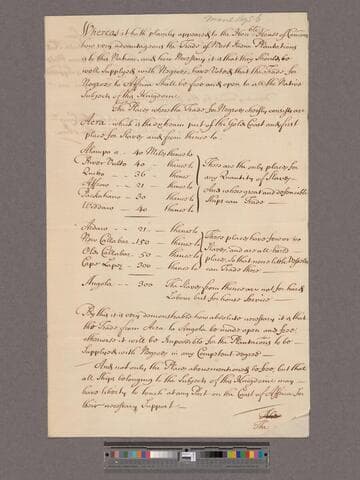 Whereas it hath plainly appeared to the Hon:ble House of Commons
how very advantageous the Trade of West India Plantations
is to this Nation, and how Necessary it is that they Should be
well Supplyed with Negroes, have Voted that the Trade for
Negroes to Affrica Shall be free and open to all the Native
Subjects of this Kingdome.
The Places where the Trade for Negroes chiefly consists are
Acra - which is the extream part of the Gold Coast and first
place for Slaves and from thence to.
Alampo is - 40 Miles thence to
River Volta 40 - thence to
Quitto - - 36 - thence
Affano - - 21 - thence to
- 30 - thence to
- 40 - thence to
These are the only places for
any Quantity of Slaves
And where great and
Ships can Trade
Ardara - - 21 - thence to
New Callabar 150 - thence to
Old Callabar 50 - thence to
Cape Lopez - 300 - thence to
These places have few or no
Slaves, and are all hard
places, So that none but little Vessells
can Trade there
Angola - - 300 The Slaves from thence are not for hard
Labour but for house Service
By this it is very demonstrable how absolute necessary it is that
the Trade from Acra to Angola be made open and free,
otherwise it will be Impossible for the Plantations to be
Supplyed with Negroes in any Competent degree
And not only the Places abovementioned be free, but that
all Ships belonging to the Subjects of this Kingdome may
have liberty to touch at any Port on the Coast of Affrica for
their necessary Support
The